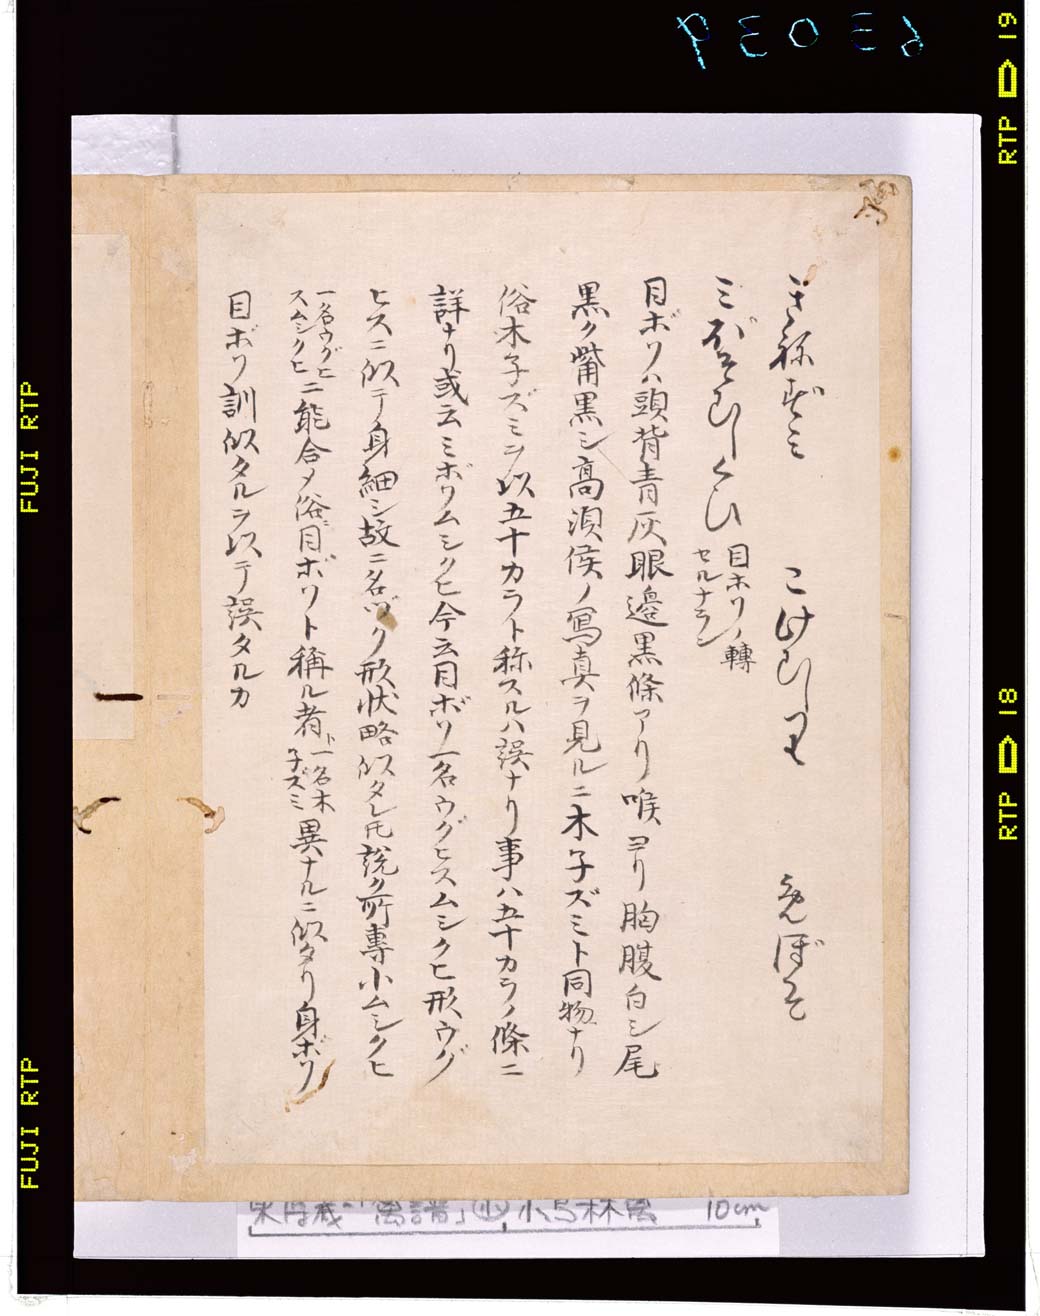 きねずミ　こけむしり　めぼそ
ミぼそむしくひ　目ホソノ轉
セルナラン
目ボソハ頭背青灰眼邊黒條アリ喉ヨリ胸腹白シ尾
黒ク嘴黒シ高須侯ノ寫真ヲ見ルニ木子ズミト同物ナリ
俗木子ズミヲ以五十カラト称スルハ誤ナリ事ハ五十カラノ條ニ
詳ナリ或云ミボソムシクヒ今云目ボソ一名ウグヒスムシクヒ形ウグ
ヒスニ似テ身細シ故ニ名ヅク形状略似タレ氏説ク所專小ムシクヒ
一名ウグヒ
スムシクヒ
ニ能合メ俗ニ目ボソト稱ル者
一名木
子ズミ
異ナルニ似タリ身ボソ
目ボソ訓似タルヲ以テ誤タルカ
63039
FUJI RTP
FUJI RTP
RTP 19
RTP 18
「禽譜」小鳥林禽 10cm